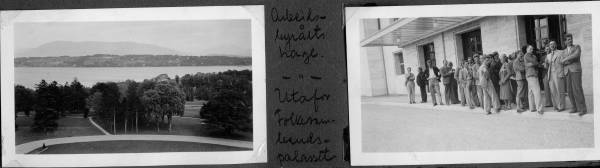 Arbeids-
byråets
hage.
— " —
Utafor
Folkesam-
bands-
palasset